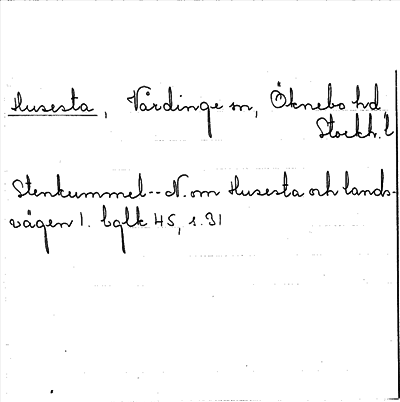 Husesta, Vårdinge sn, Öknebo hd
Stockh. l
Stenkummel -- N. om Husesta och lands-
vägen 1. bglk 45, s. 31